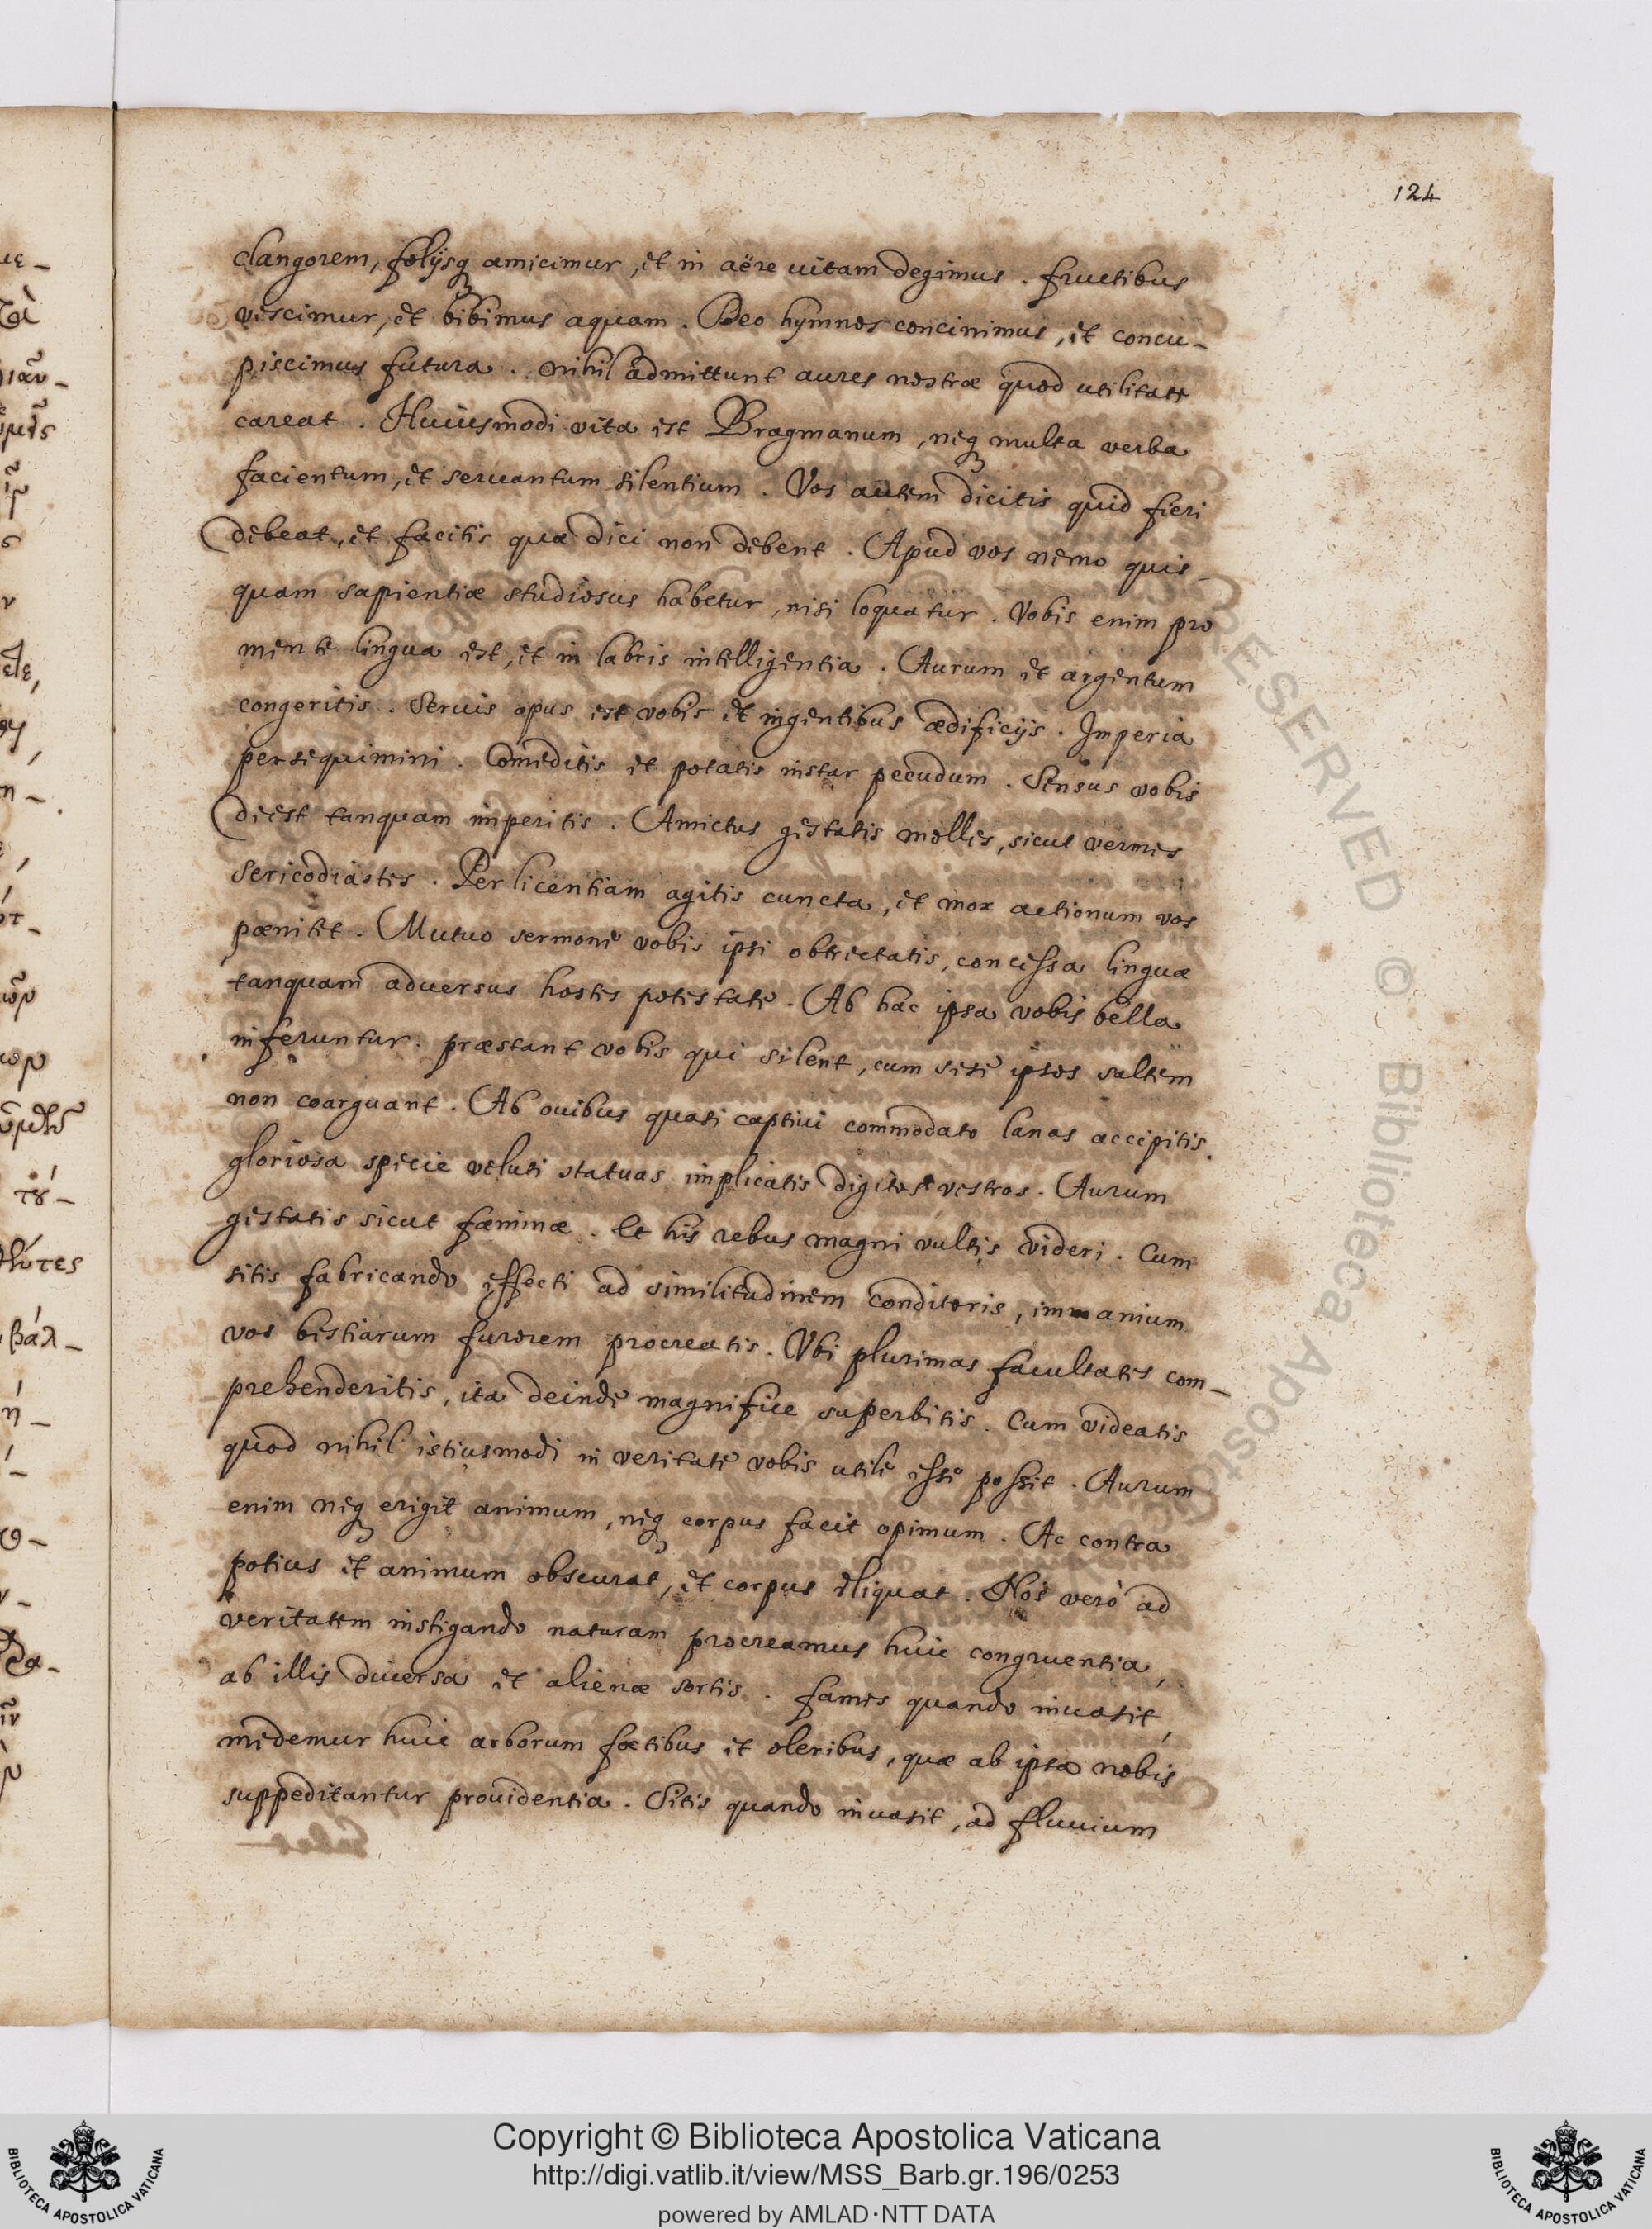 124
clangorem, folijsq; amicimur, et in aëre uitam degimus. fructibus
vescimur, et bibimus aquam. Deo hymnos concinimus, et concu-
piscimus futura. nihil admittunt aures nostræ quod utilitate
careat. Huiusmodi vita est Bragmanum, neq; multa verba
facientum, et seruantum silentium. Vos autem dicitis quid fieri
debeat, et facitis quæ dici non debent. Apud vos nemo quis-
quam sapientiæ studiosus habetur, nisi loquatur. Vobis enim pro
mente lingua est, et in labris intelligentia. Aurum et argentum
congeritis. Seruis opus est vobis et ingentibus ædificijs. Imperia
persequimini. Comeditis et potatis instar pecudum. Sensus vobis
deest tanquam imperitis. Amictus gestatis molles, sicut vermes
sericodiastes. Per licentiam agitis cuncta, et mox actionum vos
pœnitet. Mutuo sermone vobis ipsi obtrectatis, concessa linguæ
tanquam aduersus hostes potestate. Ab hac ipsa vobis bella
inferuntur. præstant vobis qui silent, cum sese ipsos saltem
non coarguant. Ab ouibus quasi captiui commodato lanas accipitis.
gloriosa specie veluti statuas implicatis digitos vestros. Aurum
gestatis sicut fœminæ. et his rebus magni vultis videri. Cum
sitis fabricando effecti ad similitudinem conditoris, immanium
vos bestiarum furorem procreatis. Vbi plurimas facultates com-
prehenderitis, ita deinde magnifice superbitis. Cum videatis
quod nihil istiusmodi in veritate vobis utile esse possit. Aurum
enim neq; erigit animum, neq; corpus facit opimum. Ac contra
potius et animum obscurat, et corpus eliquat. Nos verò ad
veritatem instigando naturam procreamus huic congruentia,
ab illis diuersa et alienæ sortis. fames quando inuasit,
medemur huic arborum fœtibus et oleribus, quæ ab ipsa nobis
suppeditantur prouidentia. Sitis quando inuasit, ad fluuium
RESERVED © Biblioteca Apostolica
Copyright © Biblioteca Apostolica Vaticana
http://digi.vatlib.it/view/MSS_Barb.gr.196/0253
powered by AMLAD·NTT DATA
BIBLIOTECA APOSTOLICA VATICANA
BIBLIOTECA APOSTOLICA VATICANA